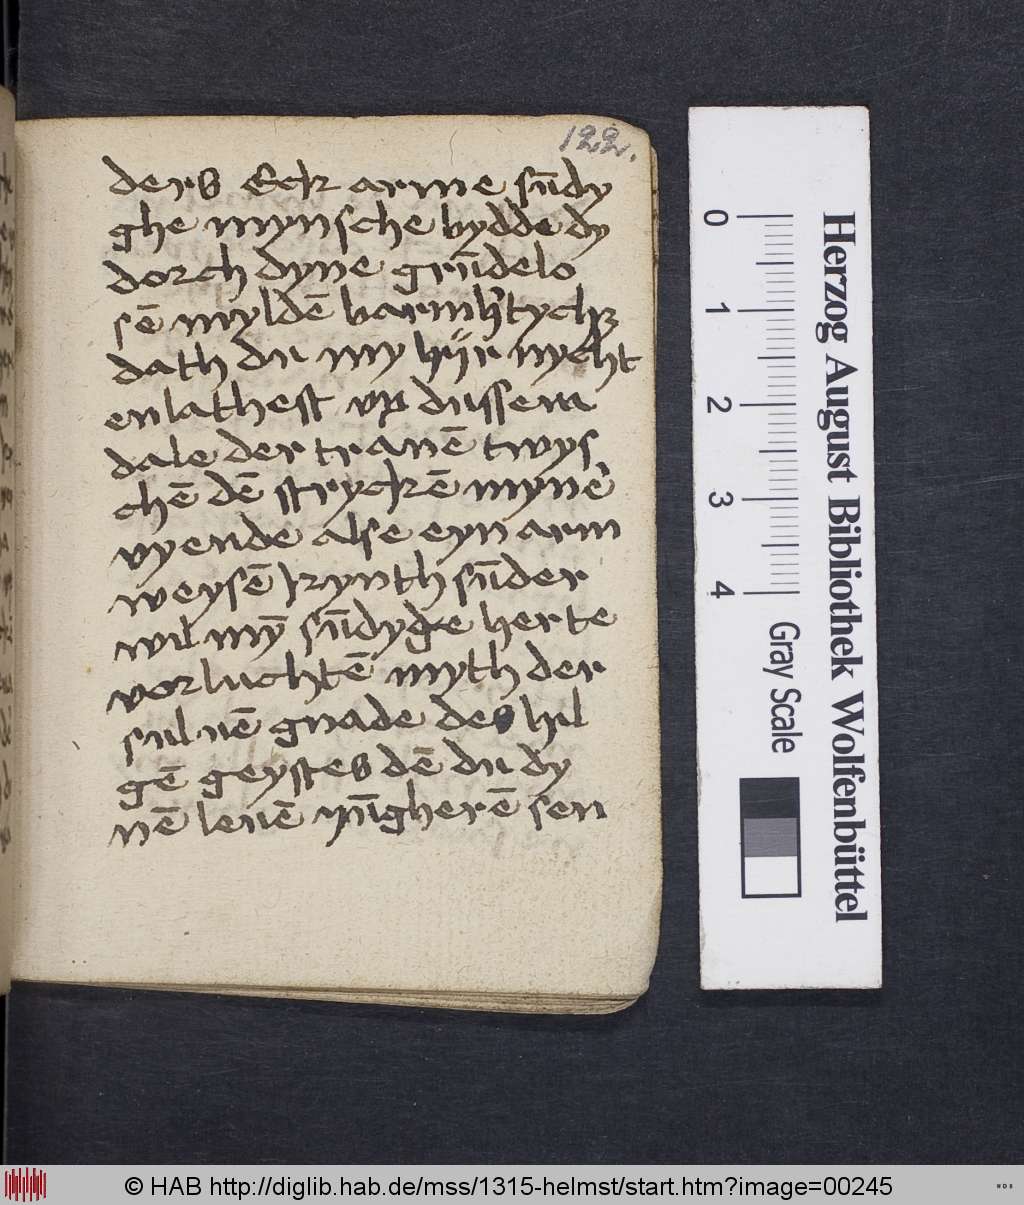 122.
ders Eck arme sūdy
ghe mynsche bydde dy
dorch dyne grūdelo
sē myldē barmh'tych
dath du my hÿr nycht
enlathest vp dussem
dale der tranē twys
chē dē stryckē mynē'
vyende alse eyn arm
weysē kynth sūder
wil mȳ sūdyge herte
vorluchtē myth der
suluē gnade des hil
gē geystes dē du dy
nē leuē yūgherē sen
Herzog August Bibliothek Wolfenbüttel
0 1 2 3 4 Gray Scale
© HAB http://diglib.hab.de/mss/1315-helmst/start.htm?image=00245